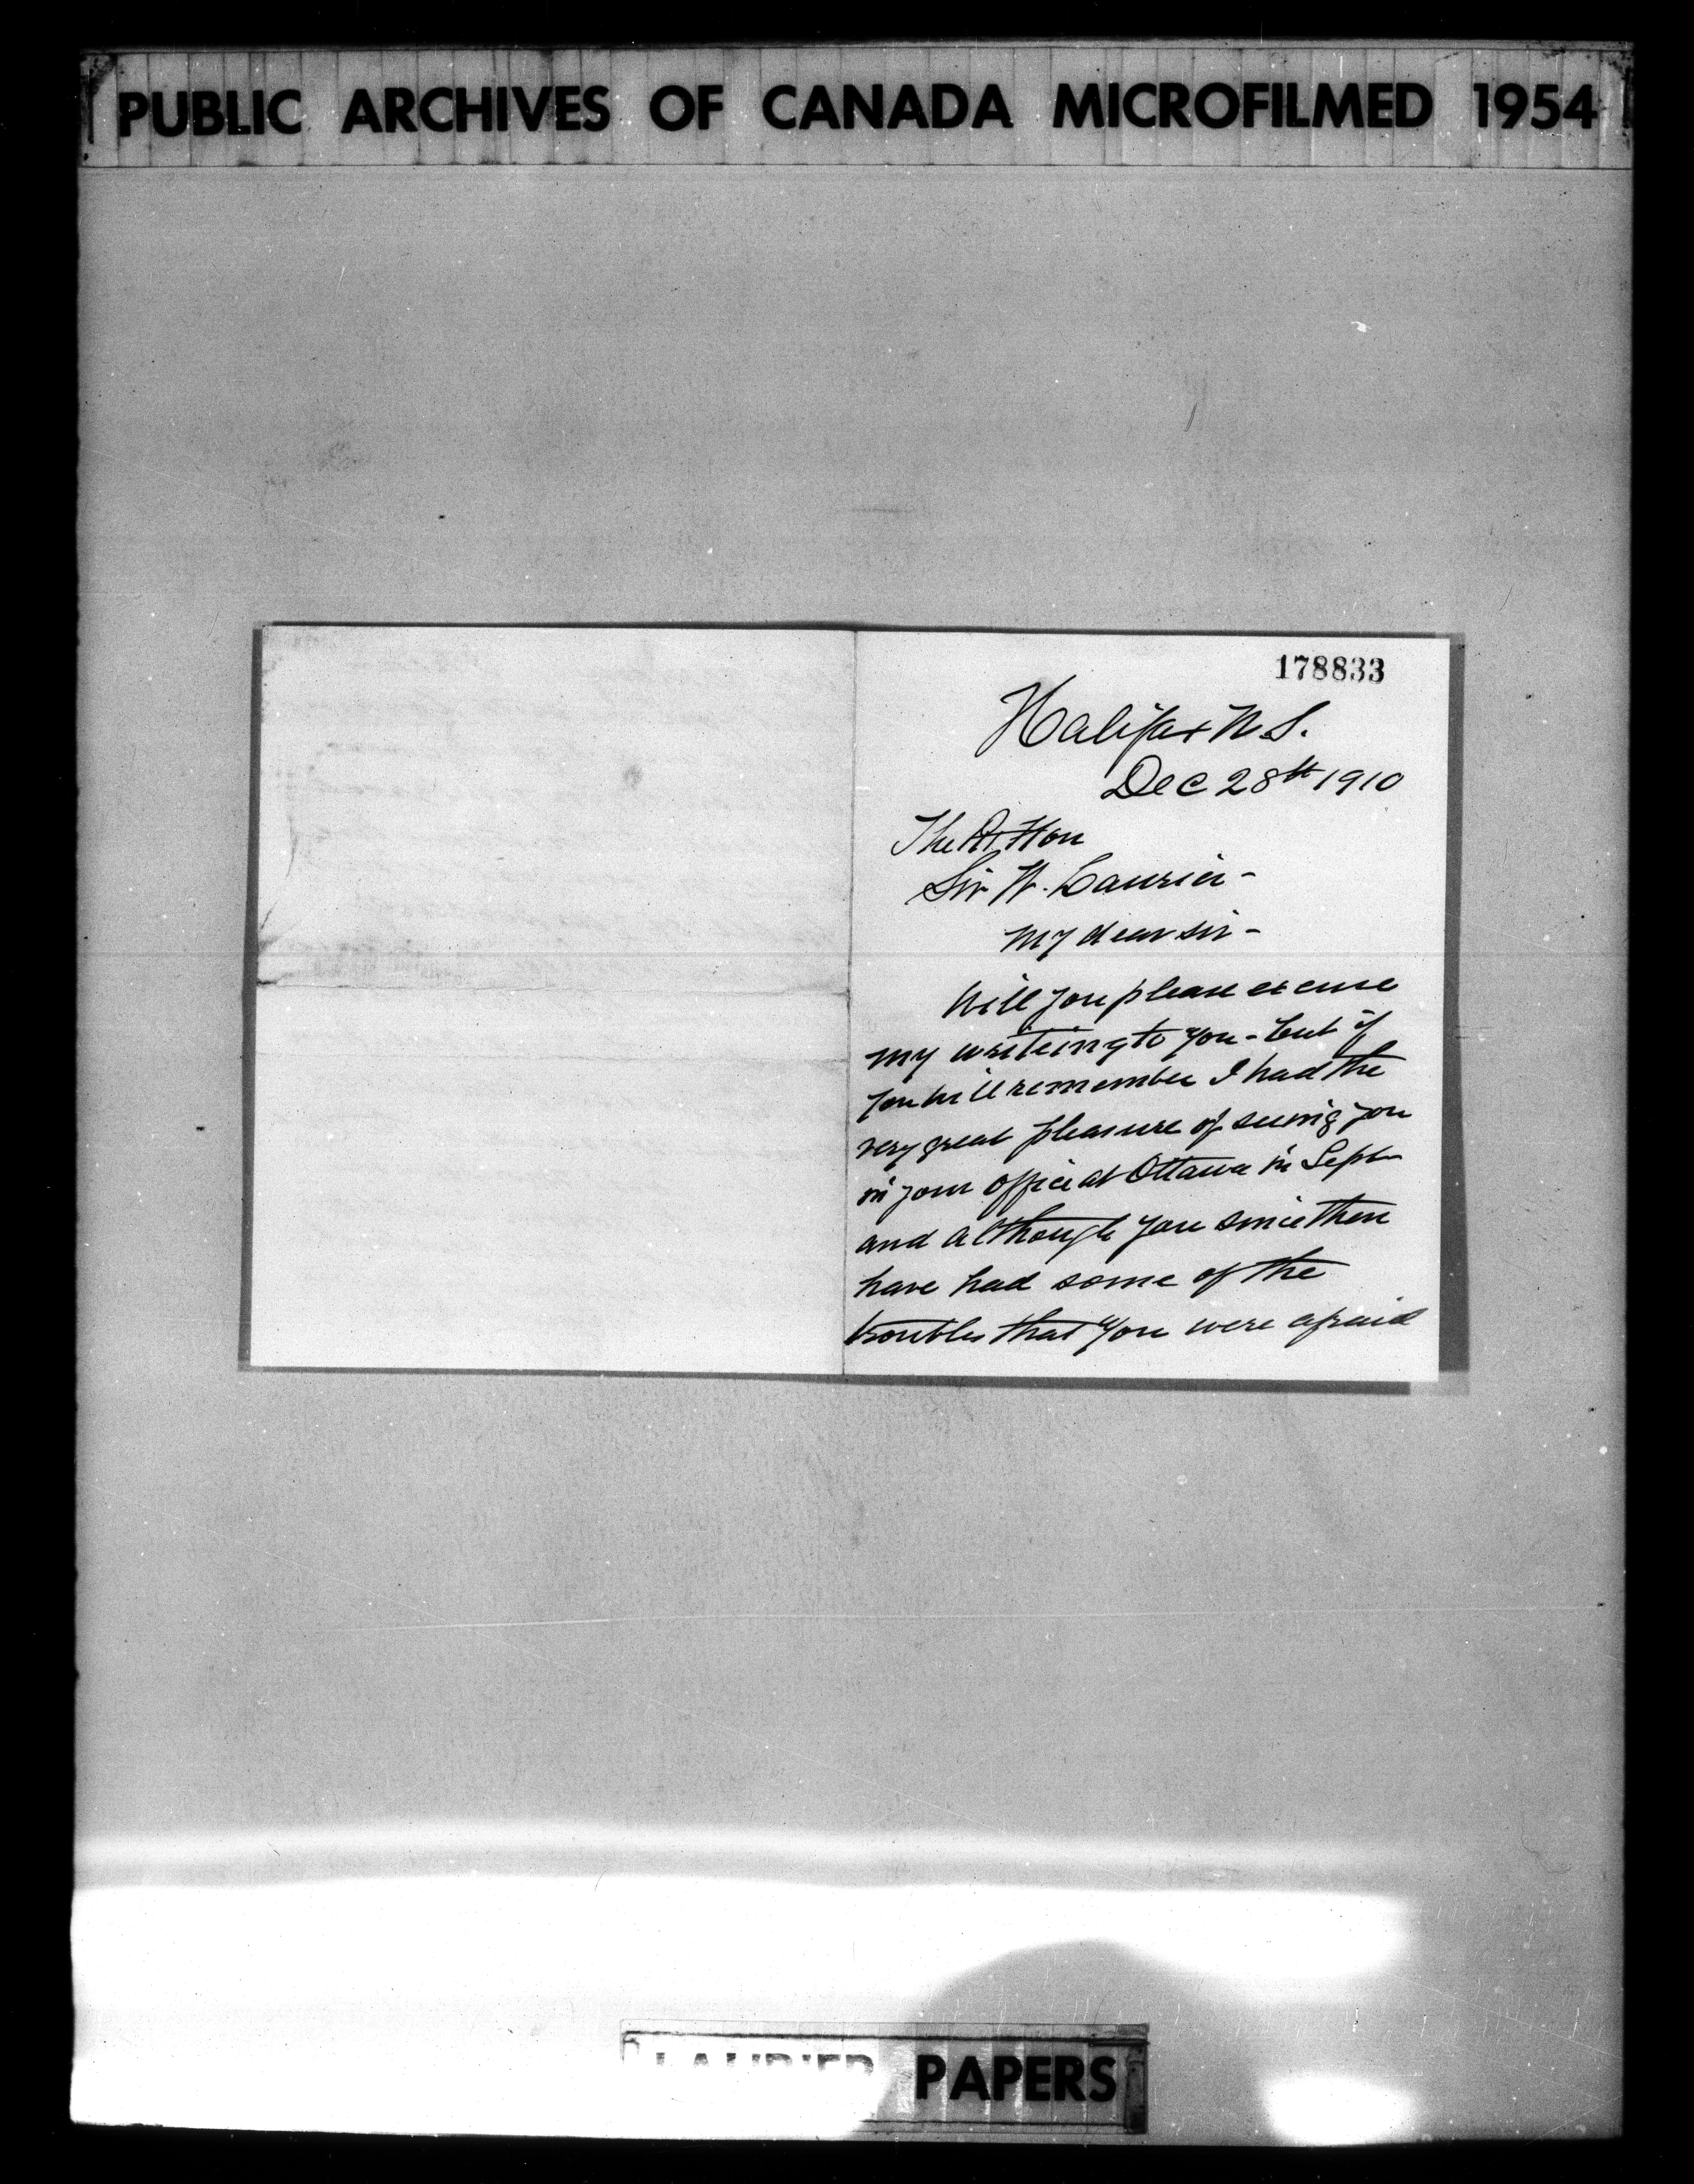 PUBLIC ARCHIVES OF CANADA MICROFILMED 1954
178833
Halifax N.S.
Dec 28th 1910
The Rt Hon
Sir W. Laurier -
My dear sir -
Will you please excuse
my writeing to you - but if
you will remember I had the
very great pleasure of seeing you
in your office at Ottawa in Sept
and although you since then
have had some of the
troubles that you were afraid
LAURIER PAPERS